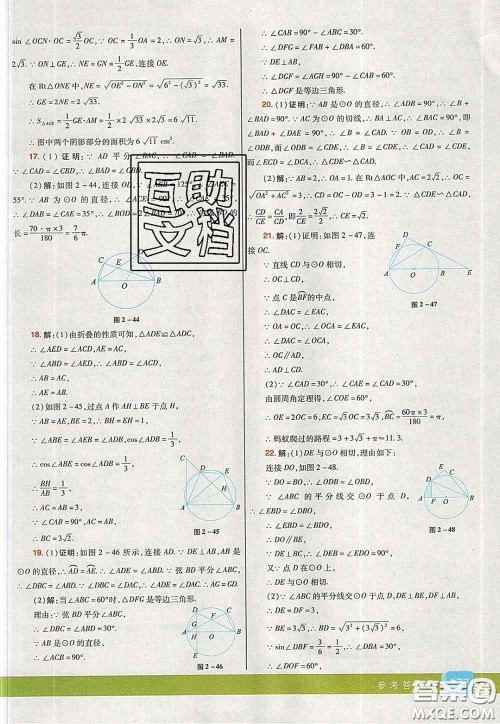 sin ∠OCN·OC=√3/2 OC. ∵OC=1/3 OA=2, ∴ON=√3, ∴AM=
2√3. ∵OE⊥GE, ON⊥GE, 连接OE.
∵在Rt△ONE中, NE=√(OE²-ON²)=√(6²-(√3)²)=√33,
∴GE=2NE=2√33.
∴S△AGE=1/2 GE·AM=1/2×2√33×2√3=6√11.
∴图中两个阴影部分的面积为6√11 cm².
17.(1)证明: ∵AD平分∠BAC, ∴∠CAD=∠
(2)解:如图2-44,连接OE,
55°. ∵AB为⊙O的直径,
长=70·π×3/180=7/6 π.
图2-44
18.解:(1)由折叠的性质可知,△ADE≌△ADC,
∴∠AED=∠ACD, AE=AC,
∵∠ABD=∠AED, ∴∠ABD=∠ACD,
∴AB=AC, ∴AE=AB.
(2)如图2-45,过点A作AH⊥BE于点H,
∵AB=AE, BE=2, ∴BH=EH=1.
∵∠ABE=∠AEB=∠ADB,
cos∠ADB=1/3,
∴cos∠ABE=cos∠ADB=1/3,
∴BH/AB=1/3,
∴AC=AB=3.
∵∠CAB=90°, AC=AB,
∴BC=3√2.
图2-45
19.(1)证明:如图2-46所示,连接AD. ∵DE⊥AB, AB是
⊙O的直径,∴AD=AE. ∵弦BD平分∠ABC, ∴∠DBC=∠DBA,
∴∠DBC=∠ABD=∠DAC=∠ADE. ∴AG=GD.
(2)解:当∠ABC=60°时,△DFG是等边三角形.
理由:∵弦BD平分∠ABC,
∴∠DBC=∠ABD=30°.
∵AB是⊙O的直径,
∴∠ACB=90°,
图2-46
∴∠CAB=90°-∠ABC=30°.
∴∠DFG=∠FAB+∠DBA=60°.
∵DE⊥AB,
∴∠DGF=∠AGH=90°-∠CAB=60°.
∴△DGF是等边三角形.
20.(1)证明: ∵AB是⊙O的直径, ∴∠ADB=90°, ∴∠B+
∠BAD=90°. ∵AC为⊙O的切线, ∴BA⊥AC, ∴∠BAD+
∠DAE=90°, ∴∠B=∠DAE=90°.
(2)解: ∵OA=1, ∴在Rt△AOC中, AC=2√2, ∴OC=
√(OA²+AC²)=3, ∴CD=OC-OD=2. ∵△CDE∽△CAD,
∴CD/CE=CA/CD, 即2/CE=2√2/2, ∴CE=√2.
21.解:(1)证明:如图2-47,连
接OC.
∵直线CD与⊙O相切,
∴OC⊥CD.
∵点C是BF的中点,
∴∠DAC=∠EAC.
∵OA=OC,
∴∠OCA=∠EAC,
∴∠DAC=∠OCA,
∴OC∥AD,
∴AD⊥CD.
(2)∵∠CAD=30°,
∴∠CAE=∠CAD=30°,
由圆周角定理得,∠COE=60°,
∴OE=2OC=6, EC=√3 OC=3√3, BC=60π×3/180=π,
∴蚂蚁爬过的路程=3+3√3+π≈11.3.
图2-47
22.解:(1)DE与⊙O相切,理由如下:
连接DO,如图2-48.
∵DO=BO,
∴∠ODB=∠OBD.
∵∠ABC的平分线交⊙O于点D,
∴∠EBD=∠DBO,
∴∠EBD=∠BDO,
∴DO∥BE.
∵DE⊥BC,
∴∠DEB=∠EDO=90°,
∴DE与⊙O相切.
图2-48
(2)∵∠ABC的平分线交⊙O于点D, DE⊥BE, DF⊥AB,
∴DE=DF=3.
∵BE=3√3, ∴BD=√(3²+(3√3)²)=6.
∵sin∠DBF=3/6=1/2,
∴∠DBA=30°,
∴∠DOF=60°,
互助文档
参考答
答案圈